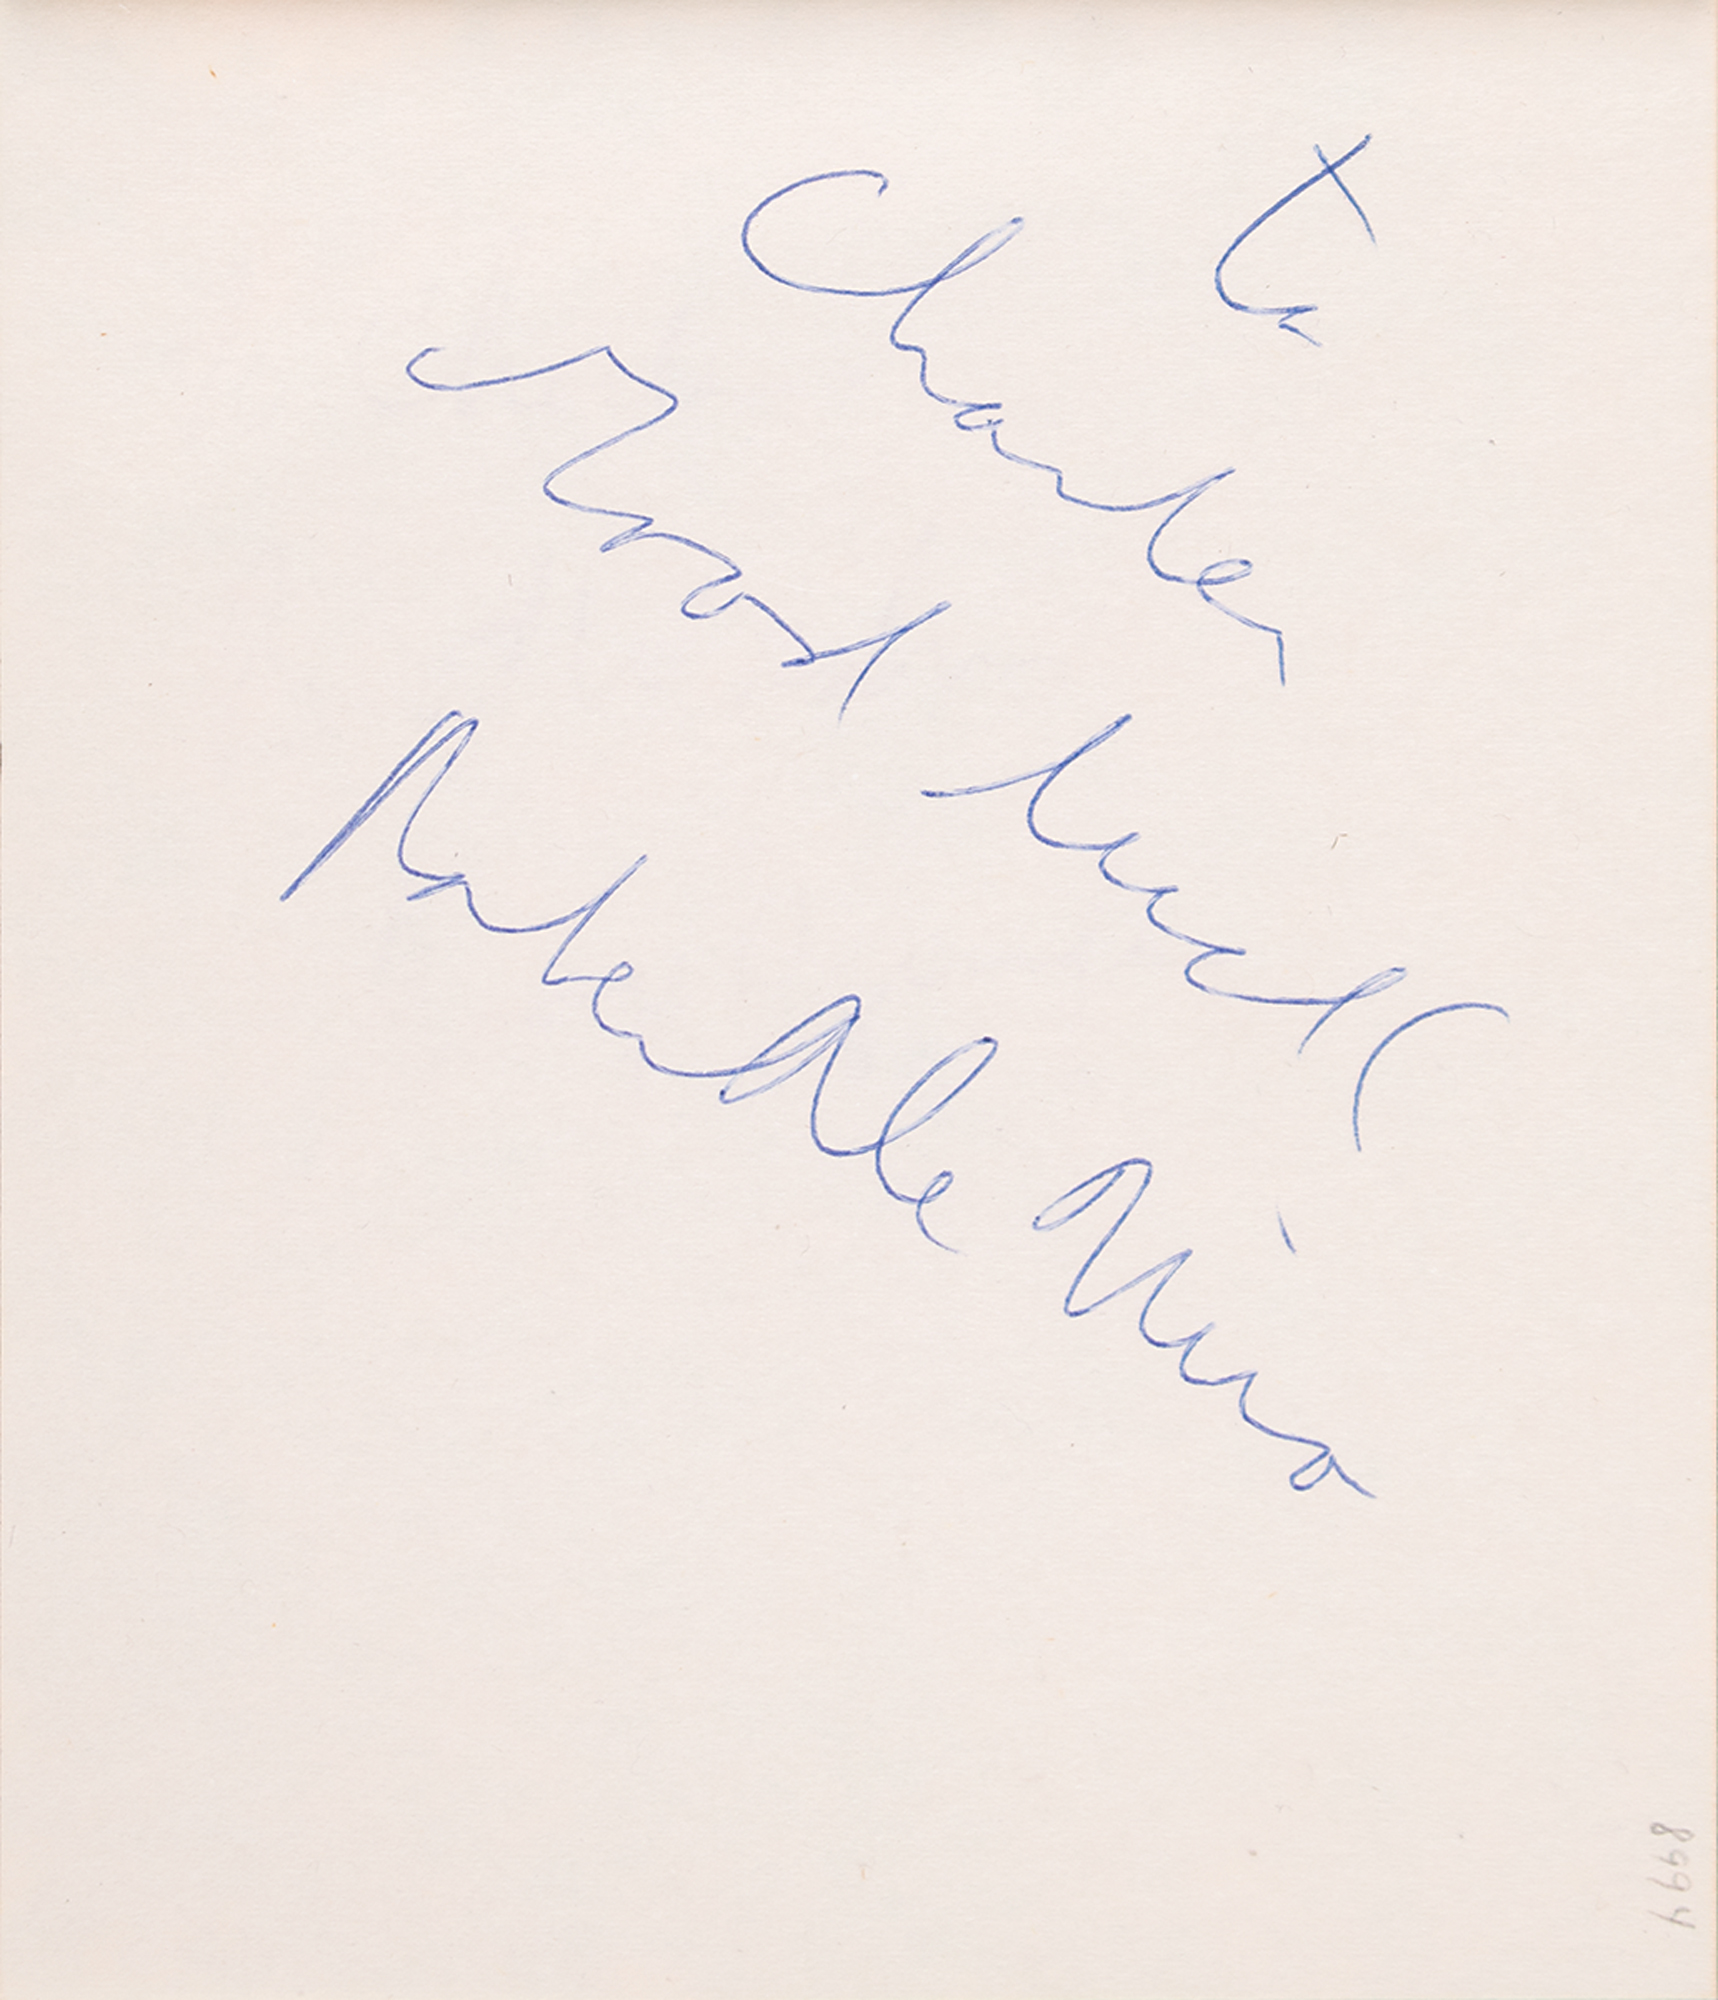 To
Charles
Good luck
Robert De Niro
8994